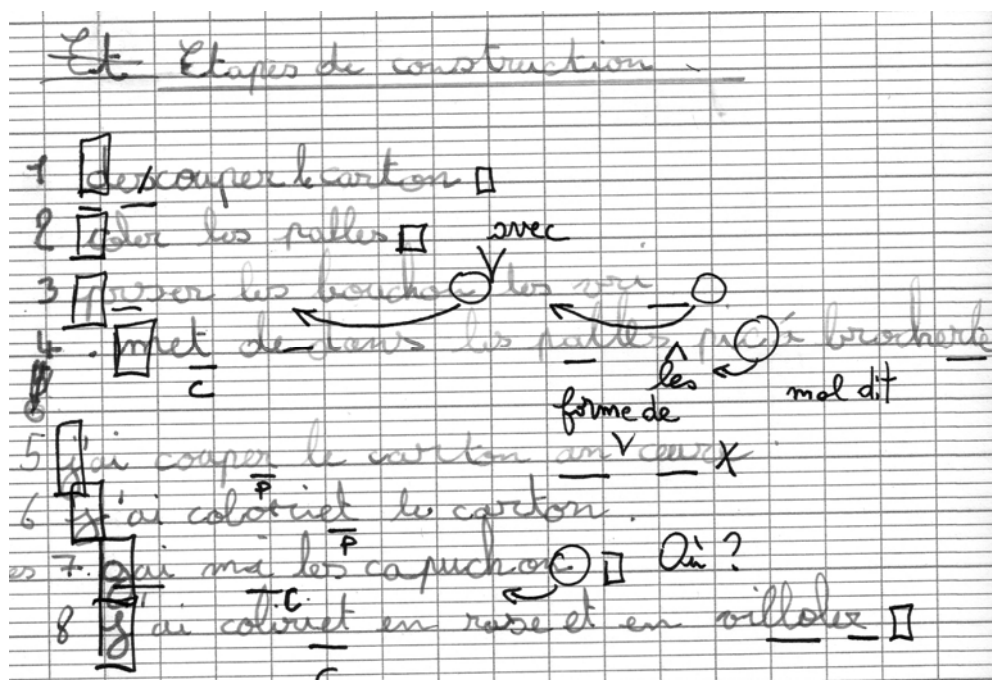 Et Etapes de construction.
1 descouper le carton
2 coler les palles
avec
3 preser les bouchon les vri
4. met de dans les pattes pic à brocherte
les
mal dit
forme de
5 j'ai couper le carton an ceur X
6 j'ai coloriet le carton.
7. gai mi les capuchon Où ?
8 j'ai coliriet en rose et en villoler
P
P
C
C
C